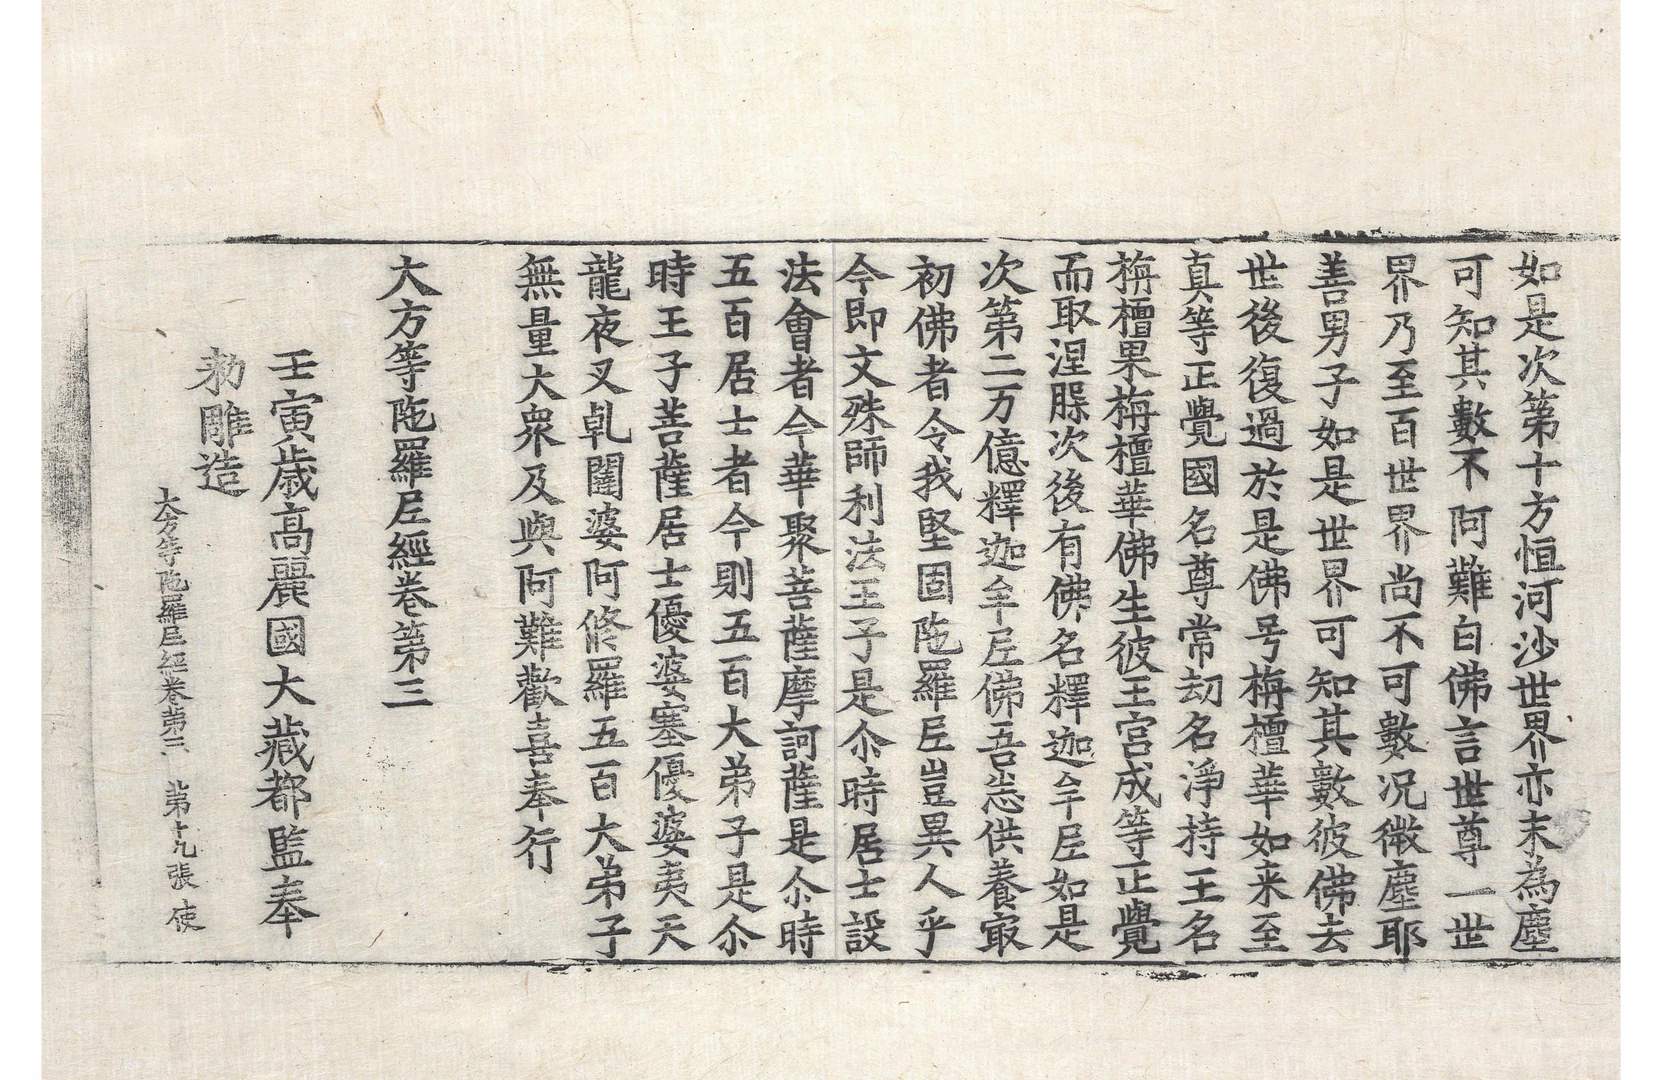 如是次第十方恒河沙世界亦末為塵
可知其數不阿難白佛言世尊一世
界乃至百世界尚不可數况微塵耶
善男子如是世界可知其數彼佛去
世後復過於是佛号栴檀華如来至
真等正覺國名尊常劫名淨持王名
栴檀果栴檀華佛生彼王宮成等正覺
而取涅脲次後有佛名釋迦牟尼如是
次第二万億釋迦牟尼佛吾悉供養㝡
初佛者令我堅固陁羅尼豈異人乎
今即文殊師利法王子是尒時居士設
法會者今華聚菩薩摩訶薩是尒時
五百居士者今則五百大弟子是尒
時王子菩薩居士優婆塞優婆夷天
龍夜叉乹闥婆阿修羅五百大弟子
無量大衆及與阿難歡喜奉行
大方等陁羅尼經卷第三
壬寅歲高麗國大藏都監奉
勑雕造
大方等陁羅尼經卷第三 第十九張 使